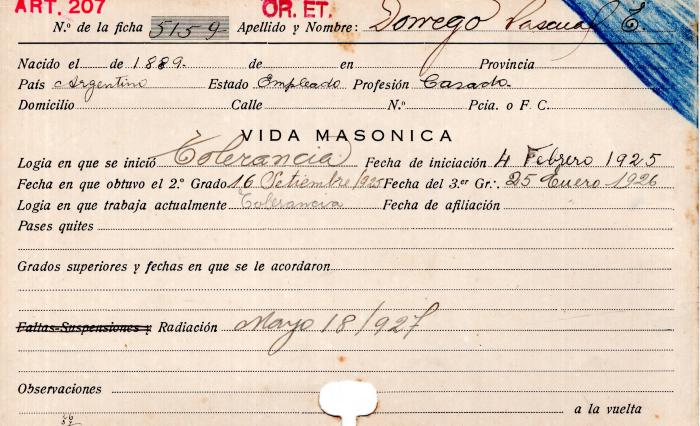 ART. 207 OR. ET.
N.º de la ficha 5159 Apellido y Nombre: Dorrego Pascual E.
Nacido el de 1889. de en Provincia
País Argentino Estado Empleado Profesión Casado.
Domicilio Calle N.º Pcia. o F. C.
VIDA MASONICA
Logia en que se inició Tolerancia Fecha de iniciación 4 Febrero 1925
Fecha en que obtuvo el 2.º Grado 16 Setiembre/925 Fecha del 3.er Gr∴ 25 Enero 1926
Logia en que trabaja actualmente Tolerancia Fecha de afiliación
Pases quites
Grados superiores y fechas en que se le acordaron
Faltas-Suspensiones y Radiación Mayo 18/927
Observaciones
a la vuelta